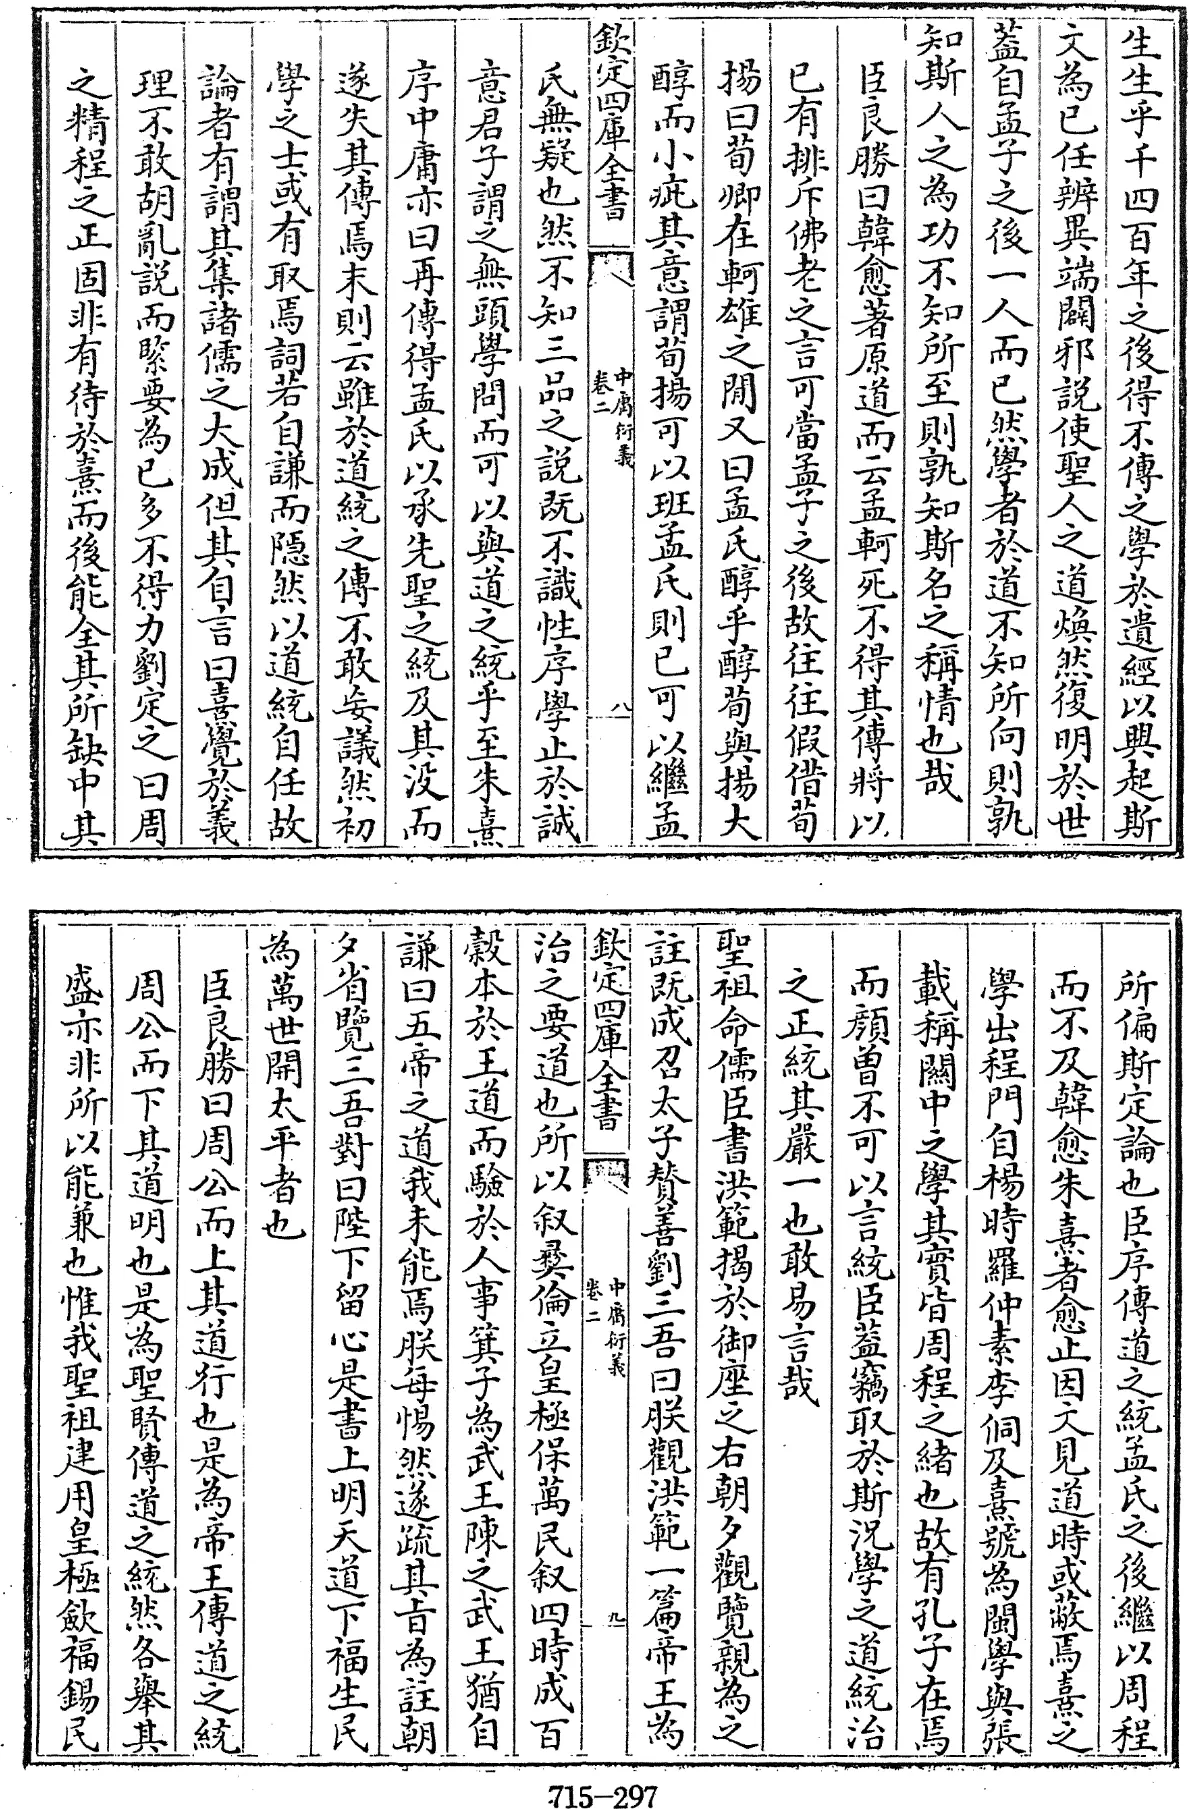 生生乎千四百年之後得不傳之學於遺經以興起斯
文為已任辨異端闢邪說使聖人之道煥然復明於世
葢自孟子之後一人而已然學者於道不知所向則孰
知斯人之為功不知所至則孰知斯名之稱情也哉
臣良勝曰韓愈著原道而云孟軻死不得其傳將以
已有排斥佛老之言可當孟子之後故往往假借荀
揚曰荀卿在軻雄之間又曰孟氏醇乎醇荀與揚大
醇而小疵其意謂荀揚可以班孟氏則已可以繼孟
欽定四庫全書
中庸衍義
卷二
八
氏無疑也然不知三品之說既不識性序學止於誠
意君子謂之無頭學問而可以與道之統乎至朱熹
序中庸亦曰再傳得孟氏以承先聖之統及其没而
遂失其傳焉末則云雖於道統之傳不敢妄議然初
學之士或有取焉詞若自謙而隱然以道統自任故
論者有謂其集諸儒之大成但其自言曰熹覺於義
理不敢胡亂說而緊要為已多不得力劉定之曰周
之精程之正固非有待於熹而後能全其所缺中其
所偏斯定論也臣序傳道之統孟氏之後繼以周程
而不及韓愈朱熹者愈止因文見道時或蔽焉熹之
學出程門自楊時羅仲素李侗及熹號為閩學與張
載稱關中之學其實皆周程之緒也故有孔子在焉
而顔曽不可以言統臣葢竊取於斯況學之道統治
之正統其嚴一也敢易言哉
聖祖命儒臣書洪範揭於御座之右朝夕觀覽親為之
註既成召太子贊善劉三吾曰朕觀洪範一篇帝王為
欽定四庫全書
中庸衍義
卷二
九
治之要道也所以叙彛倫立皇極保萬民叙四時成百
穀本於王道而驗於人事箕子為武王陳之武王猶自
謙曰五帝之道我未能焉朕每惕然遂疏其㫖為註朝
夕省覽三吾對曰陛下留心是書上明天道下福生民
為萬世開太平者也
臣良勝曰周公而上其道行也是為帝王傳道之統
周公而下其道明也是為聖賢傳道之統然各舉其
盛亦非所以能兼也惟我聖祖建用皇極歛福錫民
715-297